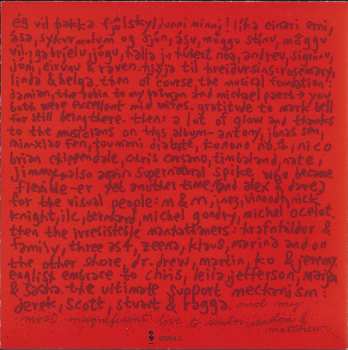 ég vil þakka fjölskyldunni minni! líka einari erni,
ása, sykurmolum og sjón, ásu, möggu stínu, möggu
vil, gabríelu, jógu, halla jo
jóni, einögu & raven. rosemary,
linda & helga. then of course the musical foundation:
damian, the robin to my batman and michael pärt & you
both were excellent mid wives. gratitude to mark bell
for still being there. then: a lot of glow and thanks
to the musicians on this album - antony, jónas sen,
min xiao fen, toumani diabate, konono no.1, nico
brian chippendale, chris corsano, timbaland, nate,
jimmy, also again supernatural spike, who became
flexible-er yet another time, and alex & darej
for the visual people: m & m, inez, vinoodh, nick
knight, ilc, bernhard, michel gondry, michel ocelot.
then the irresistible manhattaners: hrafnhildur &
family, three as4, zeena, klaus, marina and on
the other shore, dr. drew, martin, ko & jeremy.
english embrace to chris, leila, jefferson, maria
& saska. the ultimate support mechanism:
derek, scott, stuart & ragga. and my
most magnificent love to
matthew